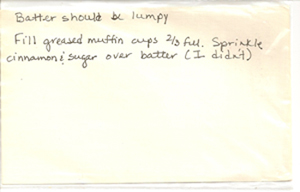 Batter should be lumpy
Fill greased muffin cups 2/3 full. Sprinkle
cinnamon & sugar over batter (I didn't)